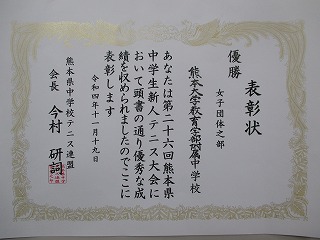 表彰状
優勝
女子団体之部
熊本大学教育学部附属中学校
あなたは第二十六回熊本県
中学生新人テニス大会に
おいて頭書の通り優秀な成
績を収められましたのでここに
表彰します
令和四年十一月十九日
熊本県中学校テニス連盟
会長 今村 研詞